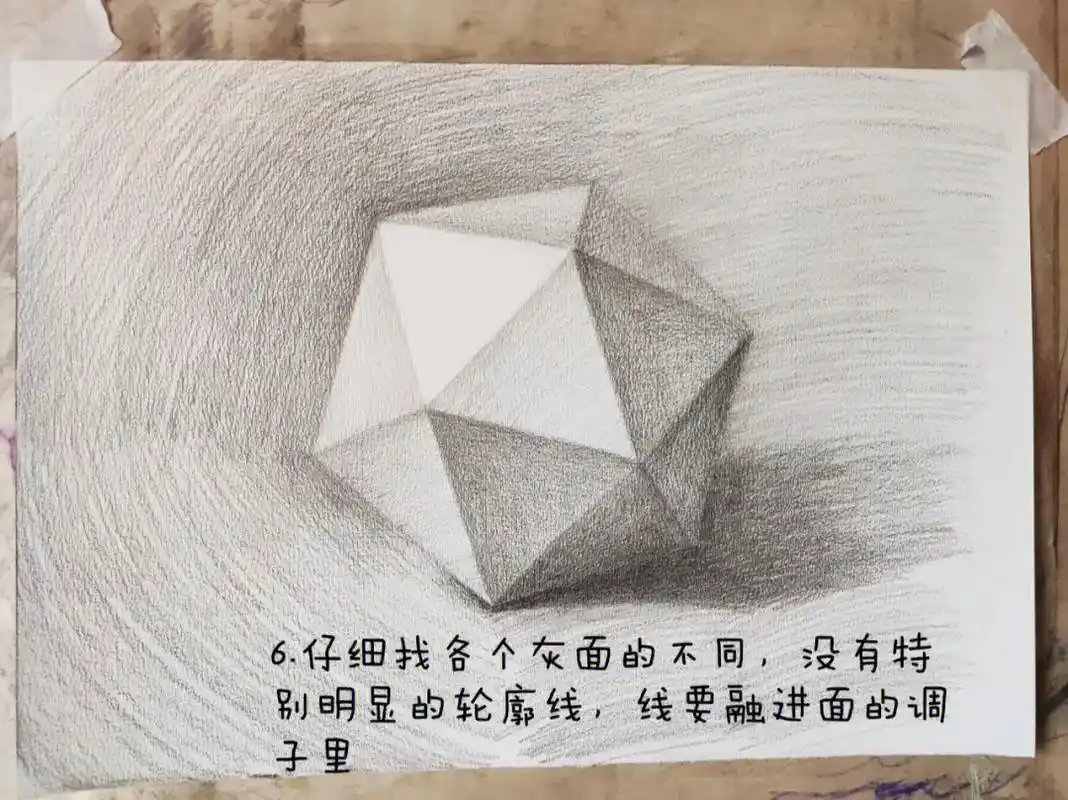 6.仔细找各个灰面的不同，没有特
别明显的轮廓线，线要融进面的调
子里